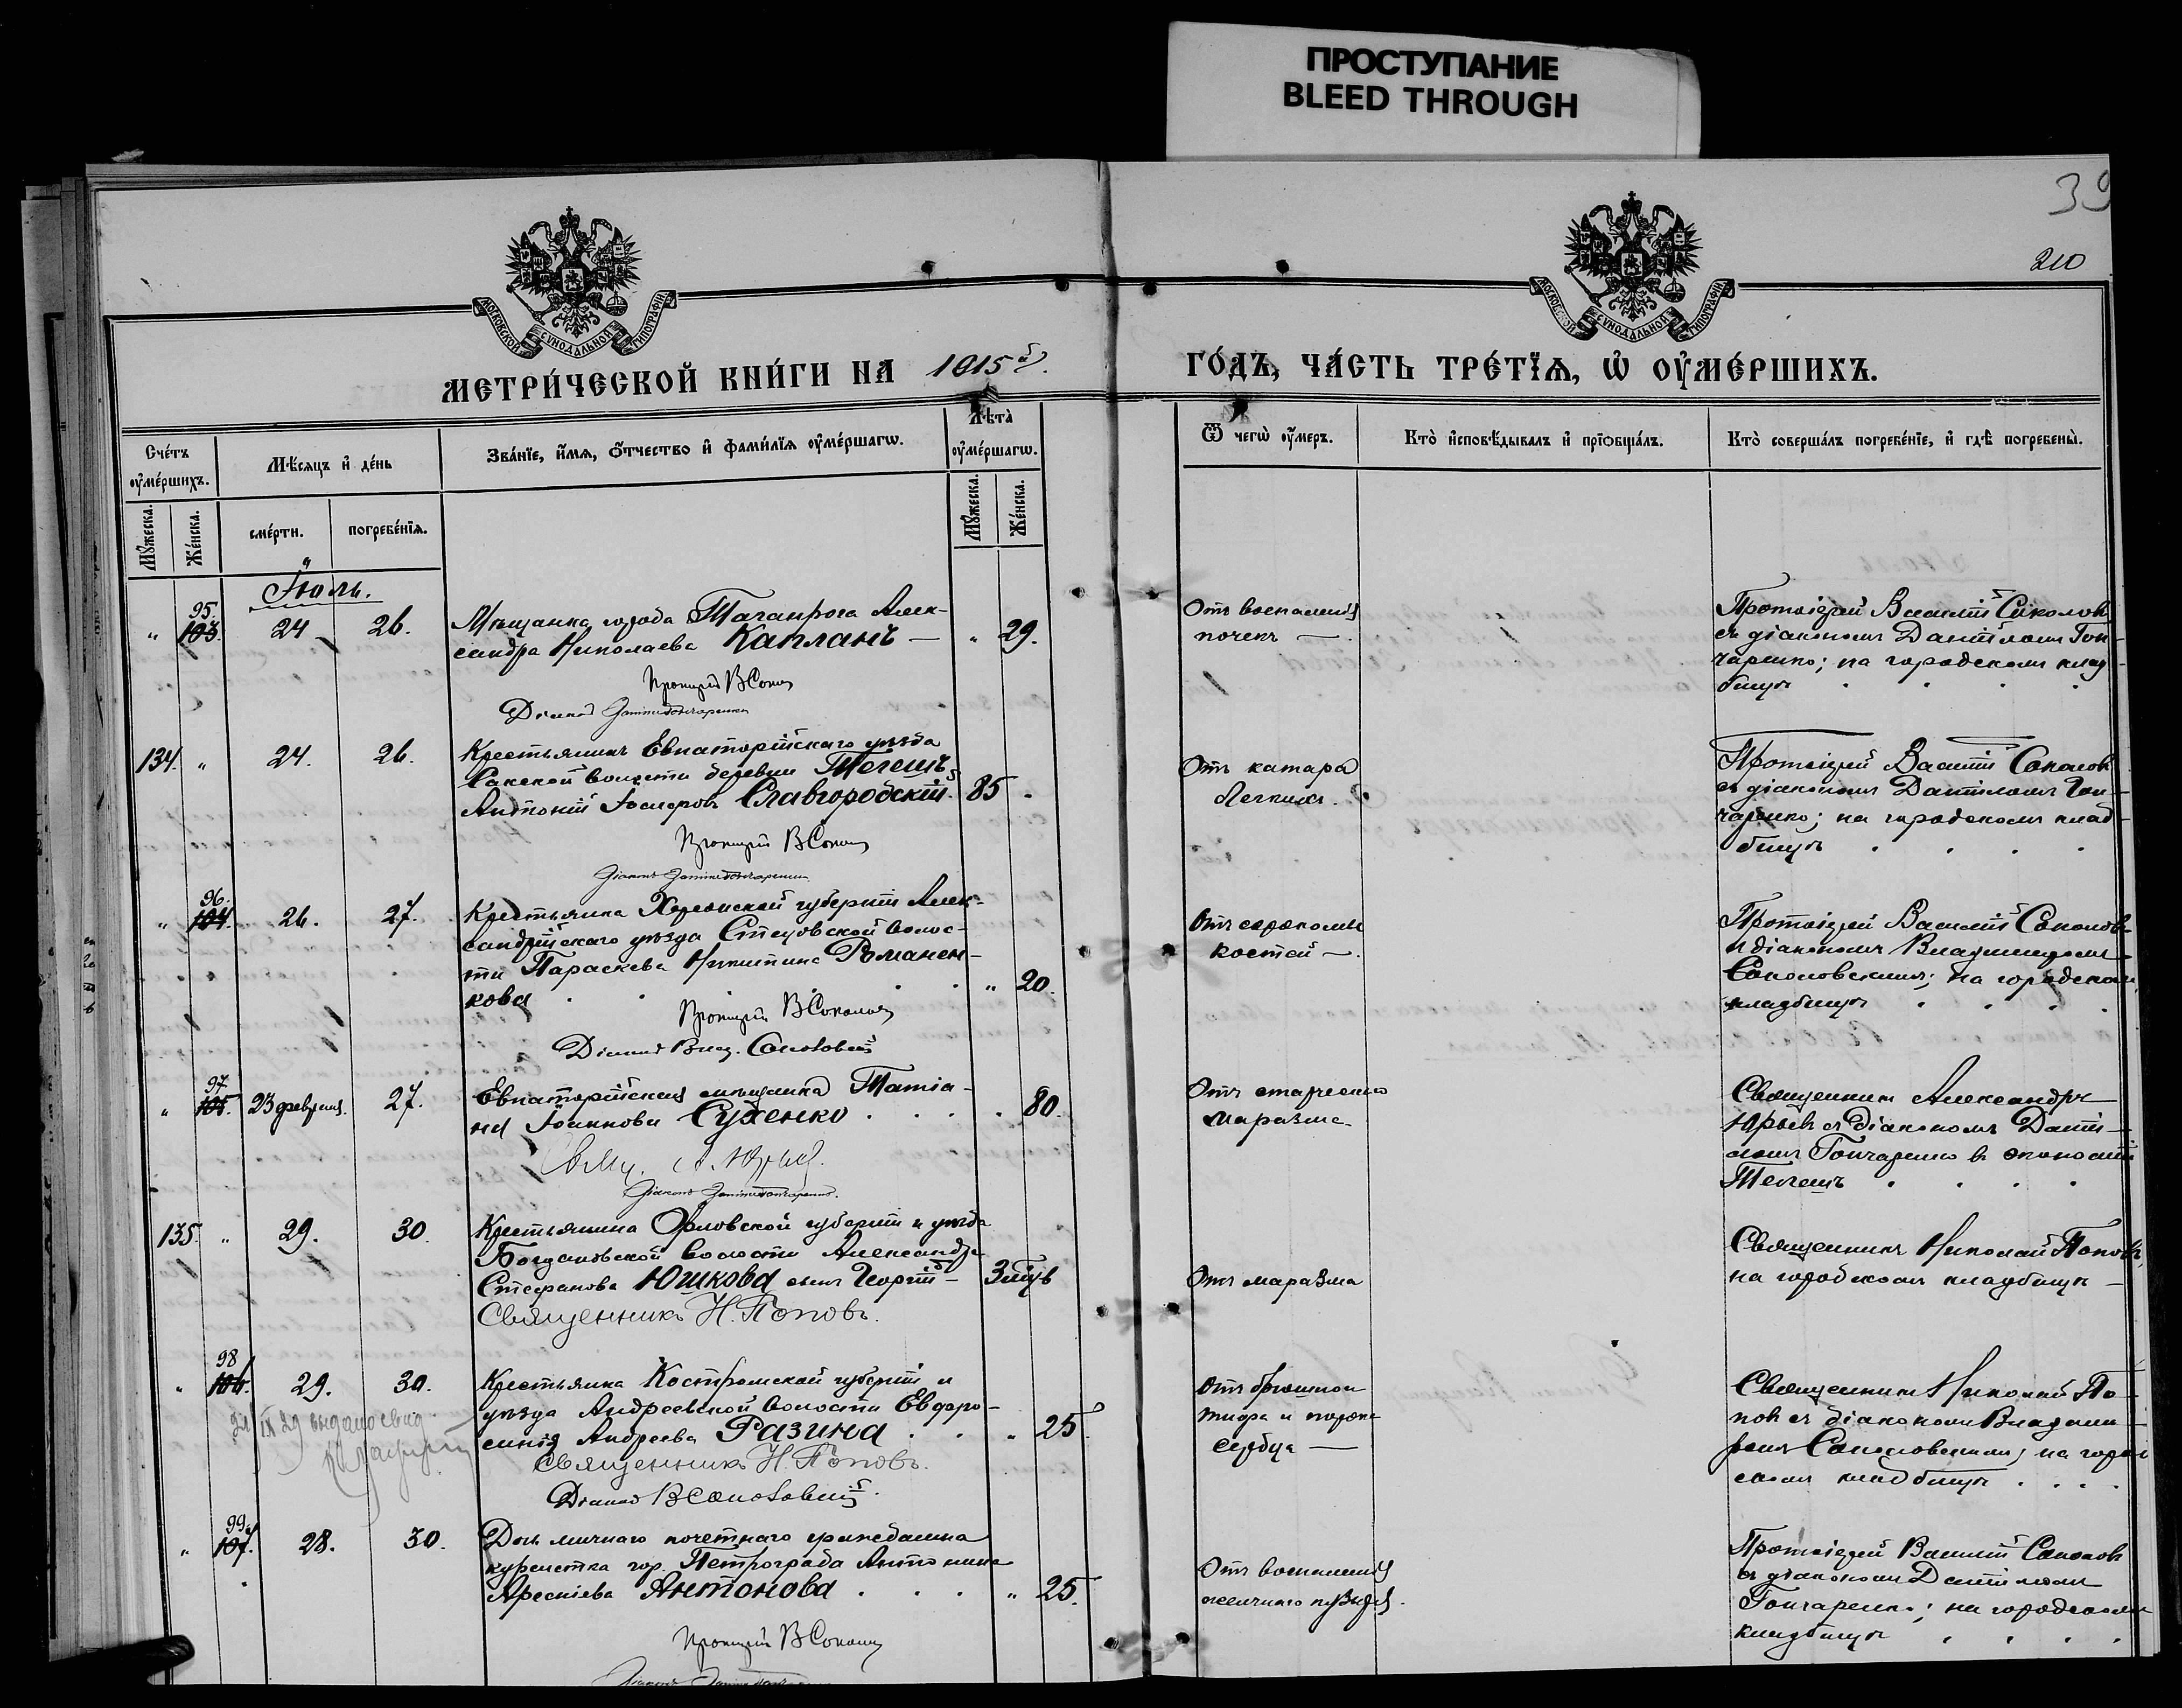 ПРОСТУПАНИЕ
BLEED THROUGH
39
210
МОСКОВСКОЙ СѴНОДАЛЬНОЙ ТИПОГРАФІИ
МОСКОВСКОЙ СѴНОДАЛЬНОЙ ТИПОГРАФІИ
МЕТРИ́ЧЕСКОЙ КНИ́ГИ НА 1915 й
ГО́ДЪ, ЧА́СТЬ ТРЕ́ТЇѦ, Ѡ҆ ОУ҆МЕ́РШИХЪ.
Сче́тъ оу҆ме́ршихъ.
Мѣ́сѧцъ и҆ де́нь
Зва́нїе, и҆́мѧ, ѻ҆́тчество и҆ фами́лїѧ оу҆ме́ршагѡ.
Лѣ́та оу҆ме́ршагѡ.
Ѿ чегѡ̀ оу҆́меръ.
Кто̀ и҆сповѣ́дывалъ и҆ прїѡбща́лъ.
Кто̀ соверша́лъ погребе́нїе, и҆ гдѣ̀ погребены̀.
Мꙋ́жеска.
Же́нска.
сме́рти.
погребе́нїѧ.
Мꙋ́жеска.
Же́нска.
Іюль.
95.
" 103. 24 26. Мѣщанка города Таганрога Алек-
сандра Николаева Капланъ — " 29.
Протоіерей В Сокол
Діаконъ Даниилъ Гончаренко
Отъ воспаленія
почекъ —
Протоіерей Василій Соколовъ
съ діакономъ Даніиломъ Гон-
чаренко; на городскомъ клад-
бищѣ
134. " 24. 26. Крестьянинъ Евпаторійскаго уѣзда
Сакской волости деревни Тегешъ
Антоній Іосифовъ Славгородскій. 85 "
Протоіерей В Сокол
Діаконъ Даниилъ Гончаренко
Отъ катара
легкихъ.
Протоіерей Василій Соколовъ
съ діакономъ Даніиломъ Гон-
чаренко; на городскомъ клад-
бищѣ
96.
" 104. 26. 27. Крестьянка Херсонской губерніи Алек-
сандрійскаго уѣзда Стецовской волос-
ти Параскева Никитина Романен-
кова " 20.
Протоіерей В Соколов
Діаконъ Влад. Соколовскій
Отъ саркомы
костей —.
Протоіерей Василій Соколовъ
съ діакономъ Владиміромъ
Соколовскимъ; на городскомъ
кладбищѣ
97.
" 105. 23 февраля. 27. Евпаторійская мѣщанка Татіа-
на Іоаннова Сухенко " 80.
Свящ. А. Юрьев.
Діаконъ Даниилъ Гончаренко.
Отъ старческаго
маразма
Священникъ Александръ
Юрьевъ съ діакономъ Даніи-
ломъ Гончаренко въ экономіи
Тегешъ
135. " 29. 30. Крестьянина Орловской губерніи и уѣзда
Богдановской волости Александра
Стефанова Юшкова сынъ Георгій — 3 мѣс.
Священникъ Н. Поповъ.
Отъ маразма
Священникъ Николай Поповъ,
на городскомъ кладбищѣ —
98
" 106. 29. 30. Крестьянка Костромской губерніи и
уѣзда Андреевской волости Евфро-
синія Андреева Разина " 25.
Священникъ Н. Поповъ.
Діаконъ В Соколовскій
IX 29 выдано свид.
Отъ брюшного
тифа и порока
сердца —
Священникъ Николай По-
повъ съ діакономъ Владими-
ромъ Соколовскимъ; на город
скомъ кладбищѣ
99.
" 107. 28. 30. Дочь личнаго почетнаго гражданина
курсистка гор. Петрограда Антонина
Арсеніева Антонова " 25.
Протоіерей В Сокол
Діаконъ Даниилъ Гончаренко
Отъ воспаленія
желчнаго пузыря.
Протоіерей Василій Соколовъ
съ діакономъ Даніиломъ
Гончаренко; на городскомъ
кладбищѣ